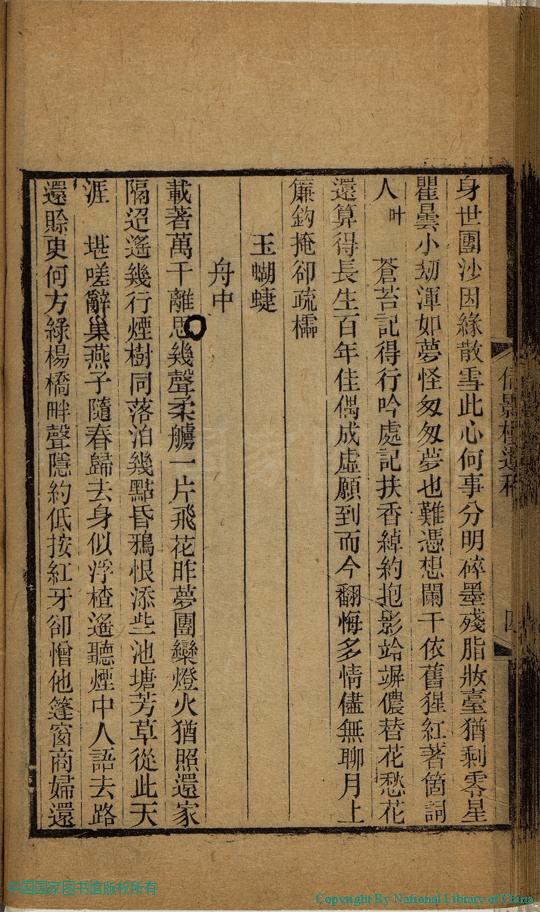 身世團沙因緣散雪此心何事分明碎墨殘脂妝臺猶剩零星
瞿曇小劫渾如夢怪匆匆夢也難憑想闌干依舊猩紅著箇詞
人叶　蒼苔記得行吟處記扶香綽約抱影竛竮儂替花愁花
還算得長生百年佳偶成虛願到而今翻悔多情儘無聊月上
簾鈎掩卻疏櫺
玉蝴蝶
舟中
載著萬千離思幾聲柔艣一片飛花昨夢團欒燈火猶照還家
隔迢遙幾行煙樹同落泊幾點昏鴉恨添些池塘芳草從此天
涯　堪嗟辭巢燕子隨春歸去身似浮楂遙聽煙中人語去路
還賒更何方綠楊橋畔聲隱約低按紅牙卻憎他篷窗商婦還
影樓遺稿
四
中國國家圖書館版權所有
Copyright By National Library of China